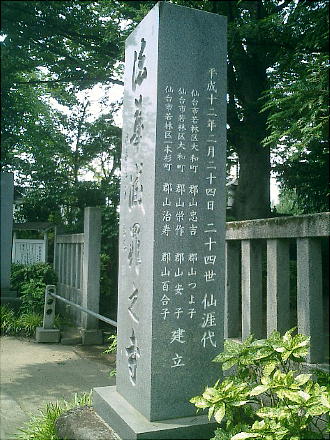 平成十二年二月二十四日 二十四世 仙涯代
仙台市若林区大和町 郡山忠吉 郡山つよ子
仙台市若林区大和町 郡山栄作 郡山安子 建立
仙台市若林区一本杉町 郡山治寿 郡山百合子
法華 之寺